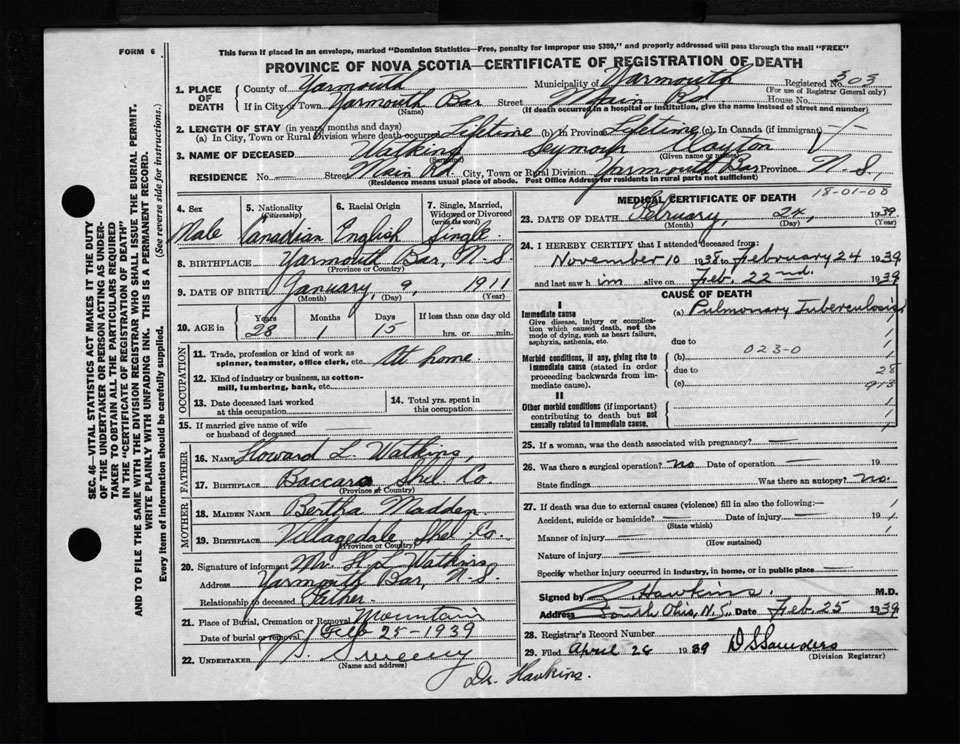 FORM 6
This form if placed in an envelope, marked "Dominion Statistics—Free, penalty for improper use $300," and properly addressed will pass through the mail "FREE"
PROVINCE OF NOVA SCOTIA—CERTIFICATE OF REGISTRATION OF DEATH
SEC. 46—VITAL STATISTICS ACT MAKES IT THE DUTY
OF THE UNDERTAKER OR PERSON ACTING AS UNDER-
TAKER TO OBTAIN ALL THE PARTICULARS REQUIRED
IN THE "CERTIFICATE OF REGISTRATION OF DEATH"
AND TO FILE THE SAME WITH THE DIVISION REGISTRAR WHO SHALL ISSUE THE BURIAL PERMIT.
WRITE PLAINLY WITH UNFADING INK. THIS IS A PERMANENT RECORD.
Every item of information should be carefully supplied. (See reverse side for instructions.)
1. PLACE OF DEATH
County of Yarmouth Municipality of Yarmouth Registered No. 303
(For use of Registrar General only)
If in City or Town Yarmouth Bar Street Main Rd House No.
(Name) (If death occurred in a hospital or institution, give the name instead of street and number)
2. LENGTH OF STAY (in years, months and days)
(a) In City, Town or Rural Division where death occurred Lifetime (b) in Province Lifetime (c) In Canada (if immigrant) —
3. NAME OF DECEASED Watkins Seymour Clayton
(Surname) (Given name or names)
RESIDENCE No. — Street Main Rd. City, Town or Rural Division Yarmouth Bar Province N.S.,
(Residence means usual place of abode. Post Office Address for residents in rural parts not sufficient)
4. Sex
Male
5. Nationality
(Citizenship)
Canadian
6. Racial Origin
English
7. Single, Married,
Widowed or Divorced
(write the word)
Single
8. BIRTHPLACE Yarmouth Bar, N.S.
(Province or Country)
9. DATE OF BIRTH January, 9, 1911
(Month) (Day) (Year)
10. AGE in
Years Months Days If less than one day old
28 1 15 hrs. or min.
OCCUPATION
11. Trade, profession or kind of work as
spinner, teamster, office clerk, etc. At home.
12. Kind of industry or business, as cotton-
mill, lumbering, bank, etc.
13. Date deceased last worked
at this occupation
14. Total yrs. spent in
this occupation
15. If married give name of wife
or husband of deceased
FATHER
16. Name Howard L. Watkins,
17. Birthplace Baccaro Shel. Co.
(Province or Country)
MOTHER
18. Maiden Name Bertha Madden
19. Birthplace Villagedale Shel Co.
(Province or Country)
20. Signature of informant Mr. H. L. Watkins
Address Yarmouth Bar, N.S.
Relationship to deceased Father
21. Place of Burial, Cremation or Removal Mountain
Date of burial or removal Feb 25-1939
22. UNDERTAKER Sweeny
(Name and address)
Dr. Hawkins.
MEDICAL CERTIFICATE OF DEATH 18-01-00
23. DATE OF DEATH February, 24, 1939
(Month) (Day) (Year)
24. I HEREBY CERTIFY that I attended deceased from:
November 10 1938 to February 24 1939
and last saw him alive on Feb. 22nd. 1939
CAUSE OF DEATH
I
Immediate cause
Give disease, injury or complication which caused death, not the
mode of dying, such as heart failure,
asphyxia, asthenia, etc.
(a) Pulmonary Tuberculosis
due to
Morbid conditions, if any, giving rise to
immediate cause (stated in order
proceeding backwards from immediate cause).
(b) 023-0
due to 28
(c) 913
II
Other morbid conditions (if important)
contributing to death but not
causally related to immediate cause.
25. If a woman, was the death associated with pregnancy? —
26. Was there a surgical operation? no Date of operation — 19
State findings Was there an autopsy? no.
27. If death was due to external causes (violence) fill in also the following:—
Accident, suicide or homicide? — Date of injury — 19
(State which)
Manner of injury —
(How sustained)
Nature of injury —
Specify whether injury occurred in industry, in home, or in public place —
Signed by Hawkins. M.D.
Address South Ohio, N.S. Date Feb. 25 1939
28. Registrar's Record Number
29. Filed April 28 1939 D S Saunders
(Division Registrar)